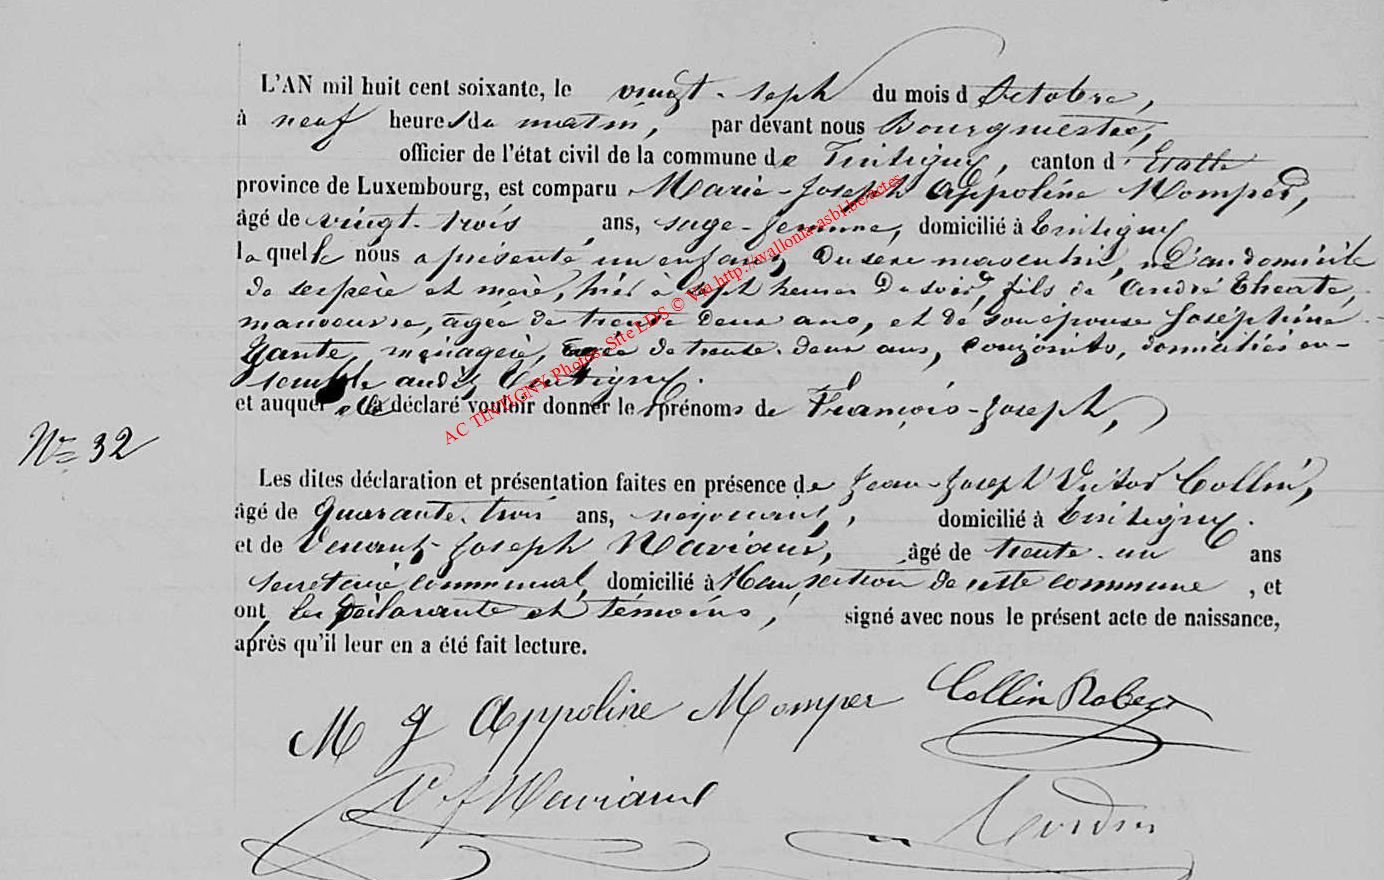 L'AN mil huit cent soixante, le vingt-sept du mois d'Octobre,
à neuf heures du matin, par devant nous Bourgmestre,
officier de l'état civil de la commune de Tintigny, canton d'Etalle
province de Luxembourg, est comparu Marie-Joseph Appoline Momper,
âgé de vingt-trois ans, sage-femme, domicilié à Tintigny
laquelle nous a présenté un enfant, du sexe masculin, né au domicile
de ses père et mère, hier à sept heures du soir, fils de André
manoeuvre, agée de trente deux ans, et de son épouse Joséphine
ménagère, agée de trente-deux ans, conjoints, domiciliés en-
semble audit Tintigny.
et auquel elle a déclaré vouloir donner les prénoms de François-Joseph,
N° 32
Les dites déclaration et présentation faites en présence de Jean-Joseph Victor Collin,
âgé de Quarante-trois ans, négociant, domicilié à Tintigny.
et de Venant-Joseph Naviaux, âgé de trente-un ans
secrétaire communal, domicilié à Han, section de cette commune, et
ont, les déclarante et témoins, signé avec nous le présent acte de naissance,
après qu'il leur en a été fait lecture.
M J Appoline Momper Collin
V J Naviaux
AC TINTIGNY Photos, Site EDS © Via http://wallonia-asbl.be/actes